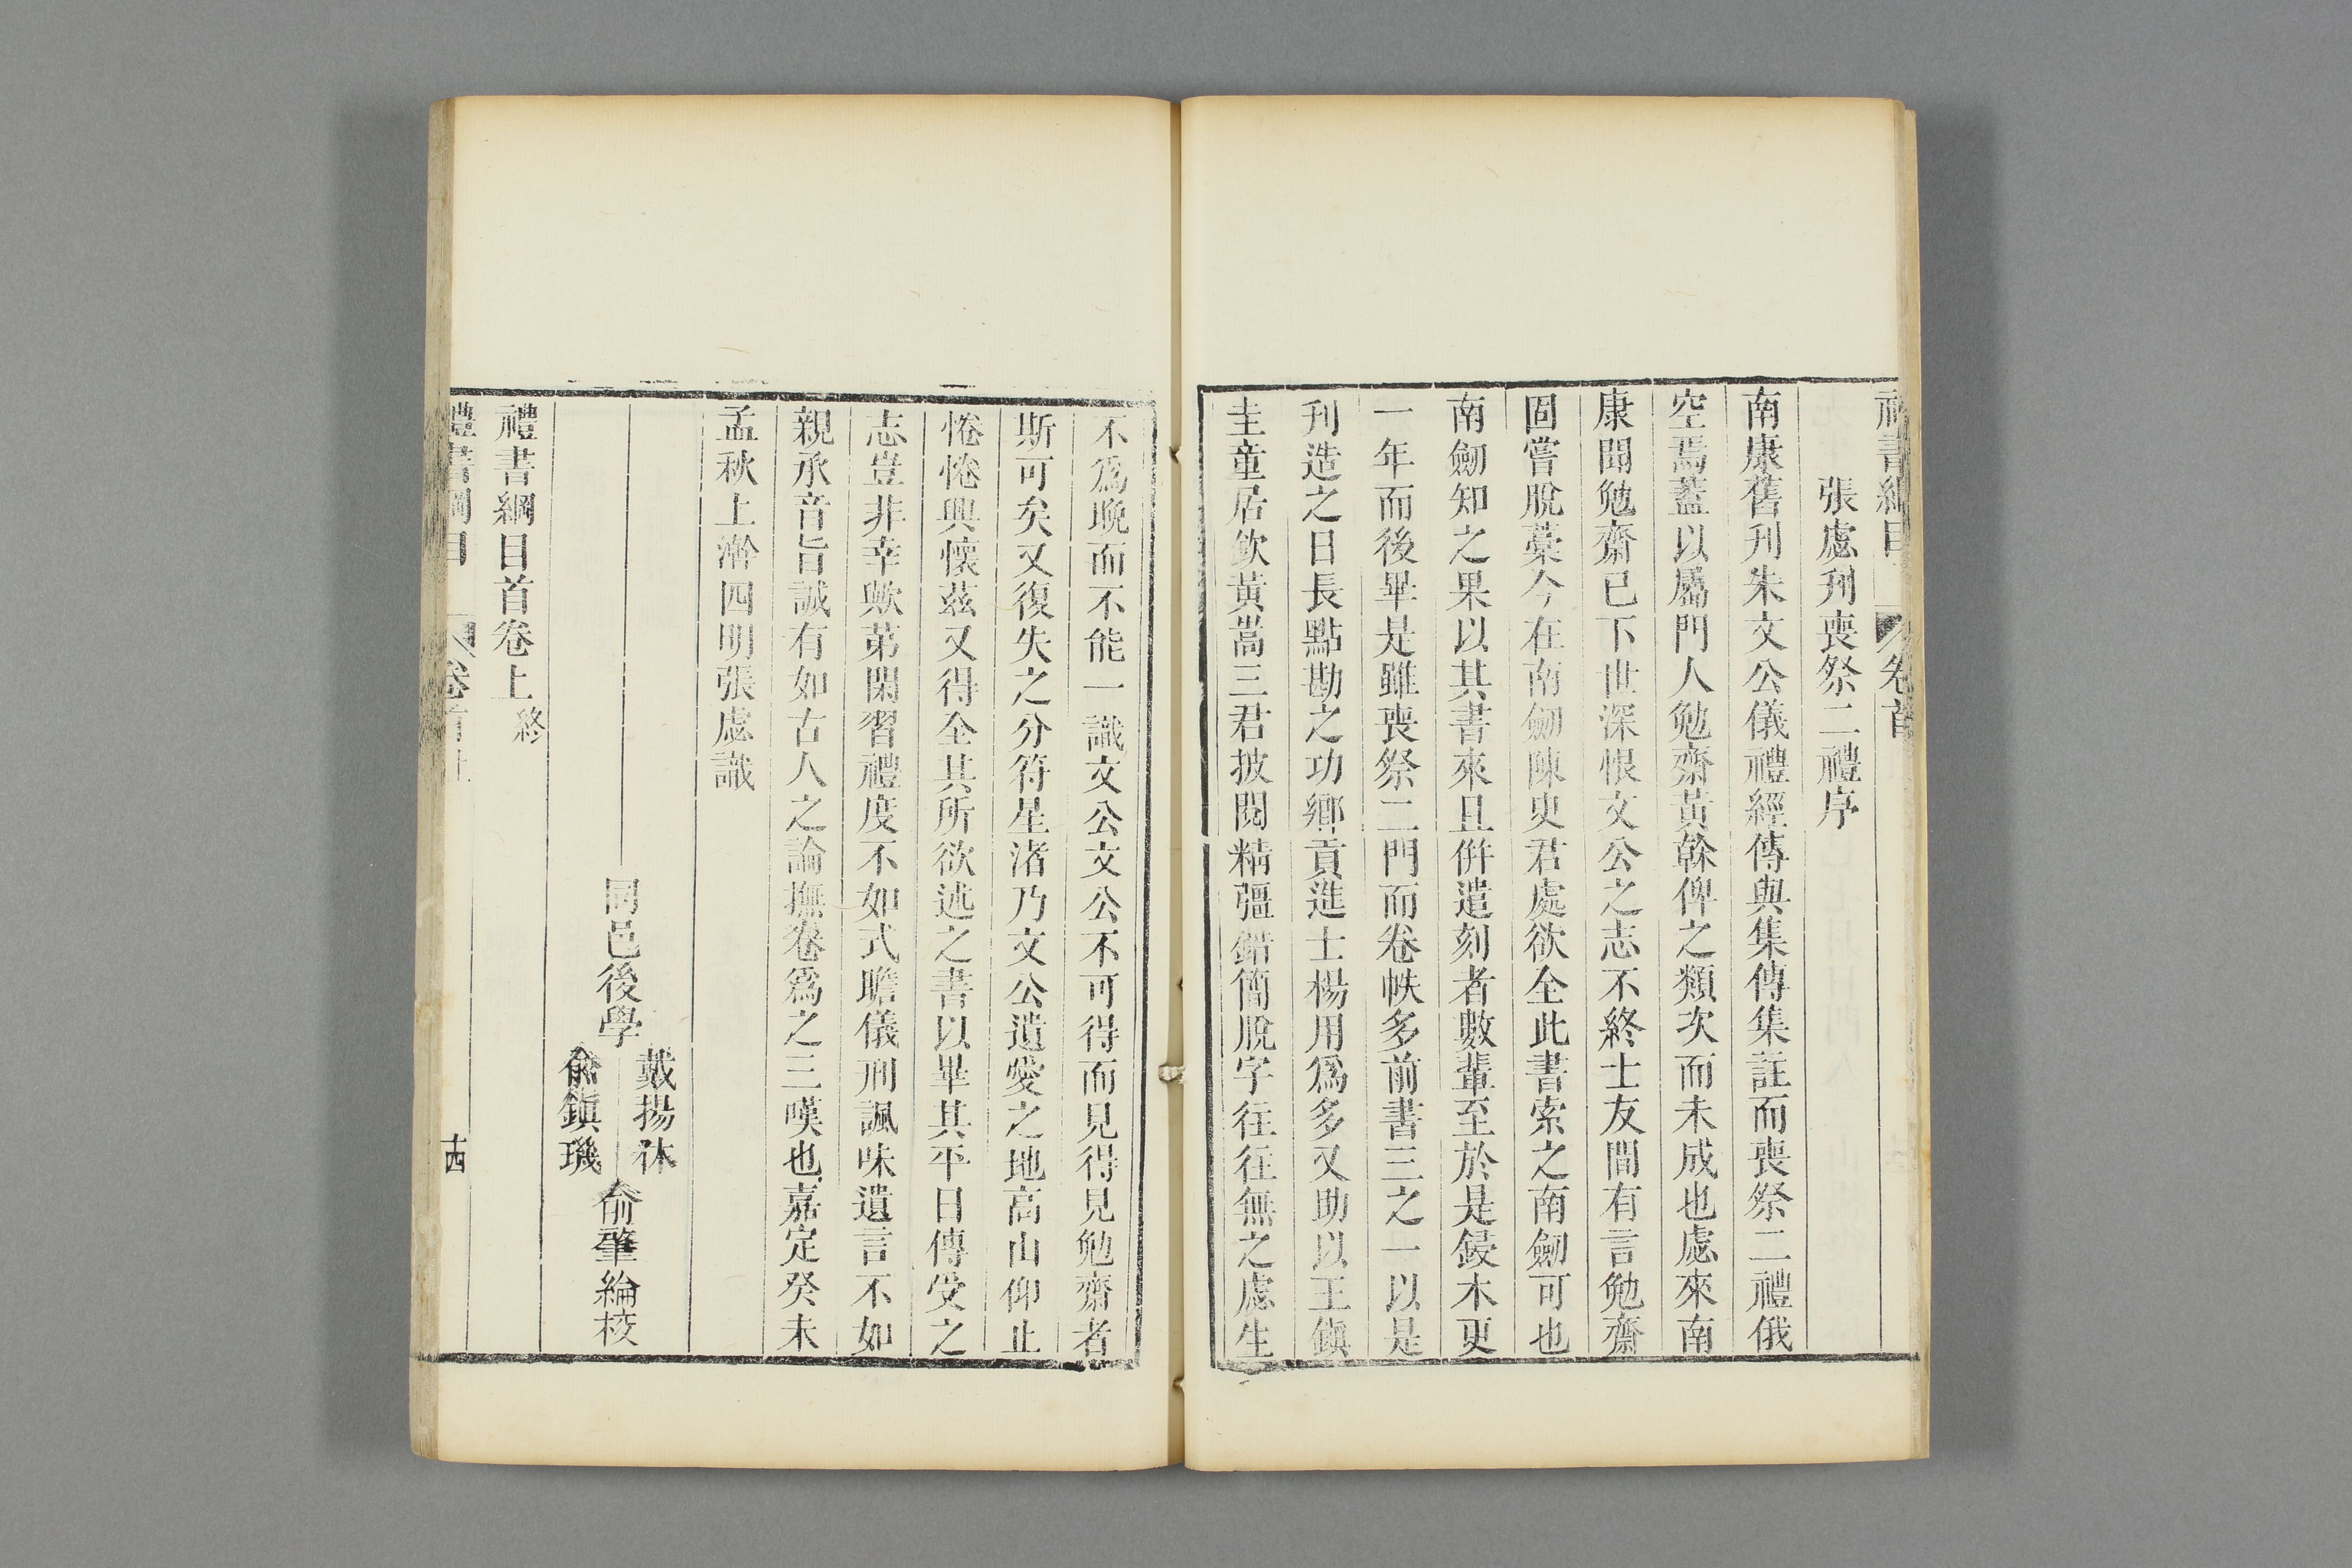 禮書綱目 卷首
張虙刋喪祭二禮序
南康舊刋朱文公儀禮經傳與集傳集註而喪祭二禮俄
空焉蓋以屬門人勉齋黃榦俾之類次而未成也虙來南
康聞勉齋已下世深恨文公之志不終士友間有言勉齋
固嘗脫藁今在南劒陳史君處欲全此書索之南劒可也
南劒知之果以其書來且倂遣刻者數輩至於是鋟木更
一年而後畢是雖喪祭二門而卷帙多前書三之一以是
刋造之日長點勘之功鄉貢進士楊用爲多又助以王鎮
圭童居欽黃嵩三君披閱精彊錯簡脫字往往無之虙生
不爲晚而不能一識文公文公不可得而見得見勉齋者
斯可矣又復失之分符星渚乃文公遺愛之地高山仰止
惓惓興懷兹又得全其所欲述之書以畢其平日傳受之
志豈非幸歟苐閑習禮度不如式瞻儀刑諷味遺言不如
親承音旨誠有如古人之論撫卷爲之三嘆也嘉定癸未
孟秋上澣四明張虙識
同邑後學 戴揚烋 俞鎭璣 俞肇綸校
禮書綱目首卷上終
禮書綱目 卷首上 十四